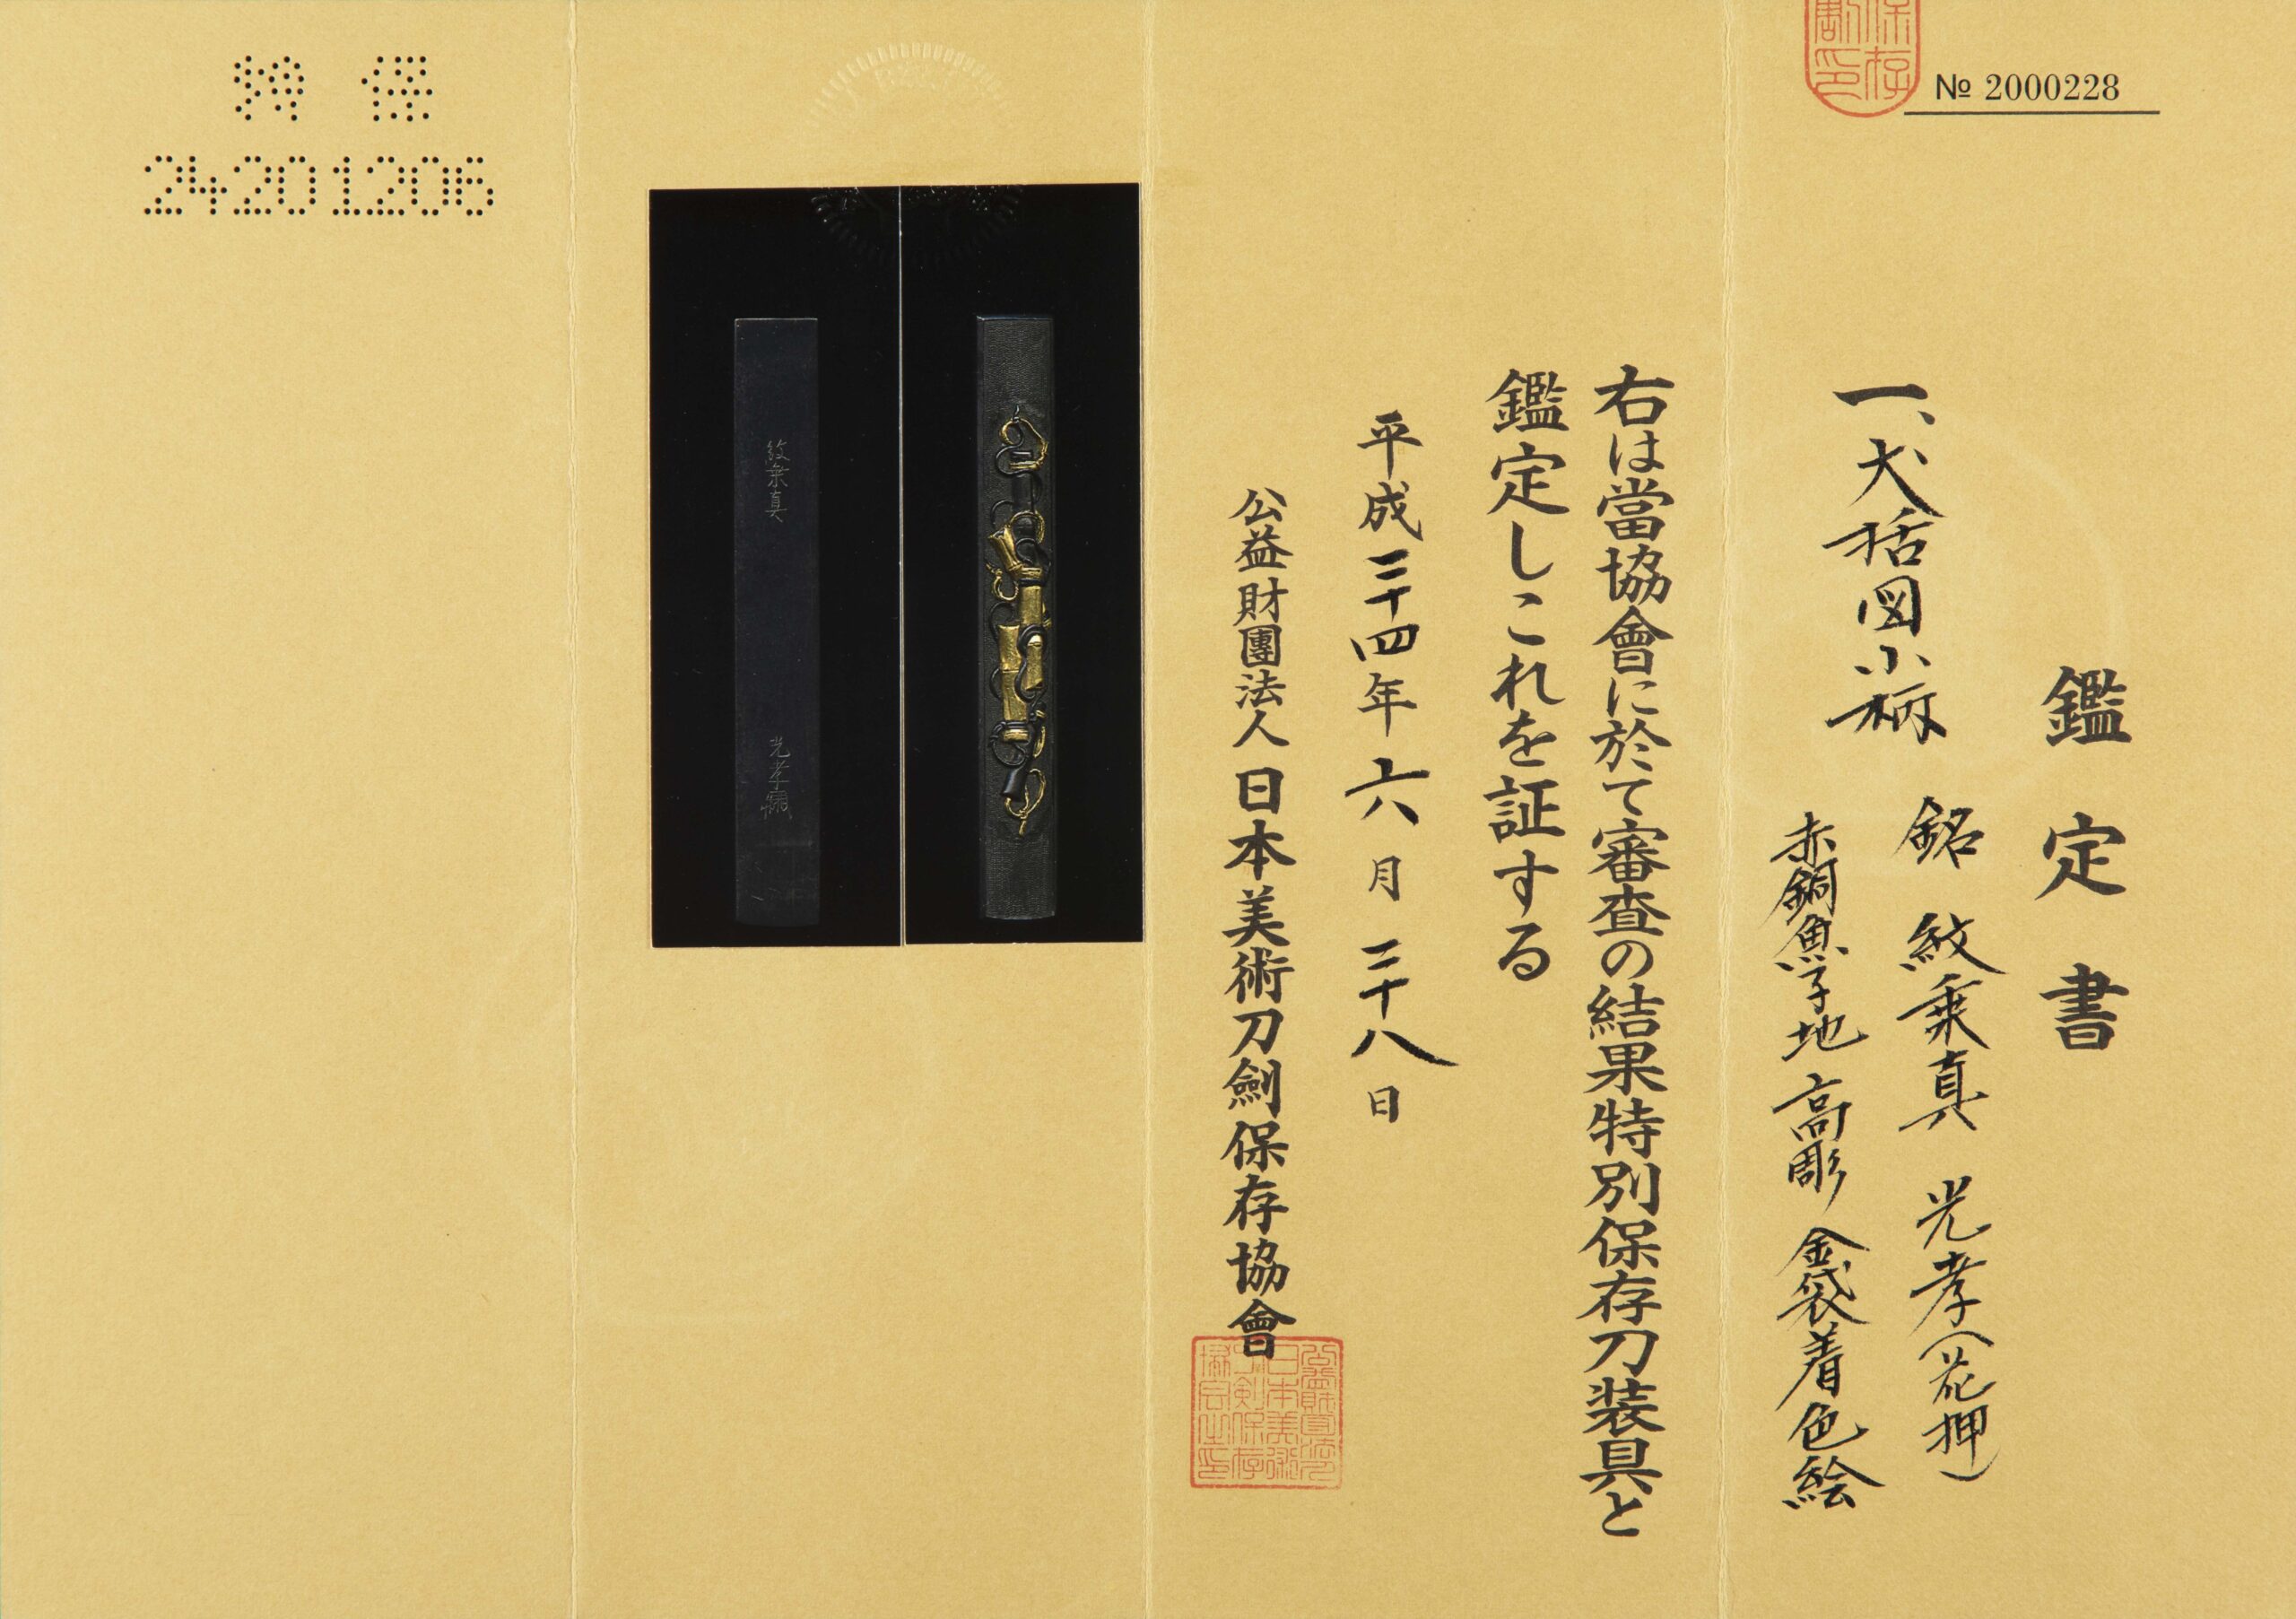 № 2000228
鑑定書
一、犬括図小柄
銘 紋乗真 光孝(花押)
赤銅魚子地 高彫 金袋着色絵
右は當協會に於て審査の結果特別保存刀装具と
鑑定しこれを証する
平成二十四年六月二十八日
公益財團法人 日本美術刀劍保存協會
紋乗真 光孝
特保
24201206